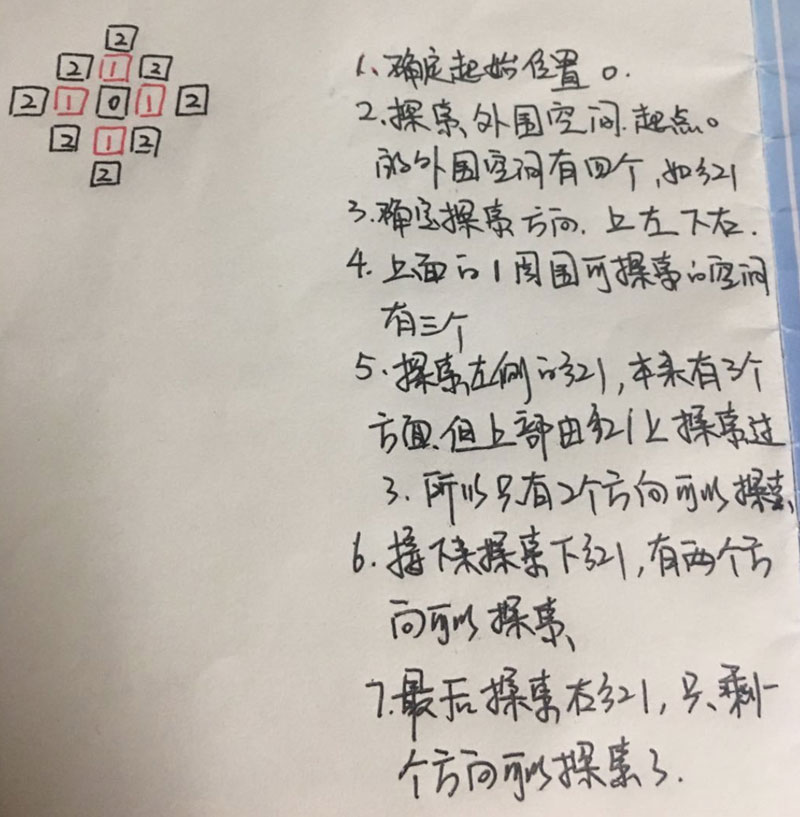 2
2 1 2
2 1 0 1 2
2 1 2
2
1、确定起始位置 0.
2、探索外围空间.起点0
的外围空间有四个,如红1
3.确定探索方向.上左下右.
4.上面的1周围可探索的空间
有三个
5.探索左侧的红1,本来有3个
方面,但上部由红1上探索过
了.所以只有2个方向可以探索
6.接下来探索下红1,有两个方
向可以探索、
7.最后探索右红1,只剩一
个方向可以探索了.